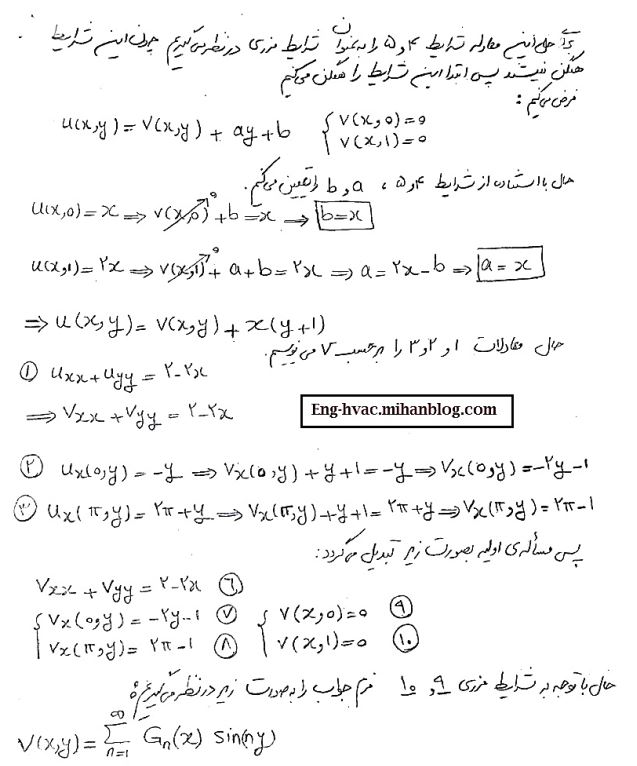 برای حل این معادله شرایط ۴ و ۵ را به عنوان شرایط مرزی در نظر می‌گیریم چون این شرایط
همگن نیستند پس ابتدا این شرایط را همگن می‌کنیم
فرض می‌کنیم:
u(x,y) = v(x,y) + ay + b { v(x,0) = 0
v(x,1) = 0
حال با استفاده از شرایط ۴ و ۵ ، a و b را تعیین می‌کنیم.
u(x,0) = x ⇒ v(x,0)↗0 + b = x ⇒ b = x
u(x,1) = ۲x ⇒ v(x,1)↗0 + a + b = ۲x ⇒ a = ۲x - b ⇒ a = x
⇒ u(x,y) = v(x,y) + x(y+1)
حال معادلات ۱ و ۲ و ۳ را بر حسب v می نویسیم.
① uxx + uyy = ۲-۲x
⇒ vxx + vyy = ۲-۲x
Eng-hvac.mihanblog.com
② ux(0,y) = -y ⇒ vx(0,y) + y + 1 = -y ⇒ vx(0,y) = -۲y-1
③ ux(π,y) = ۲π + y ⇒ vx(π,y) + y + 1 = ۲π + y ⇒ vx(π,y) = ۲π-1
پس مسأله‌ی اولیه بصورت زیر تبدیل می‌گردد:
vxx + vyy = ۲-۲x ⑥
{ vx(0,y) = -۲y-1 ⑦ { v(x,0) = 0 ⑨
vx(π,y) = ۲π-1 ⑧ v(x,1) = 0 ⑩
حال با توجه به شرایط مرزی ۹ و ۱۰ فرم جواب را به صورت زیر در نظر می‌گیریم:
v(x,y) = ∑_{n=1}^{∞} Gn(x) sin(ny)